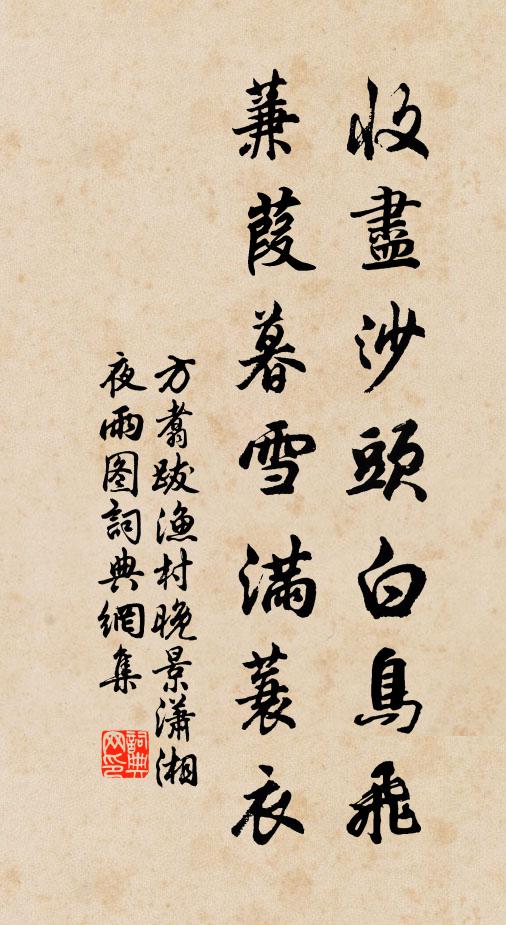 收盡沙頭白鳥飛
蒹葭暮雪滿蓑衣
方翥跋漁村晚景瀟湘
夜雨图詞典網集
詞典網印